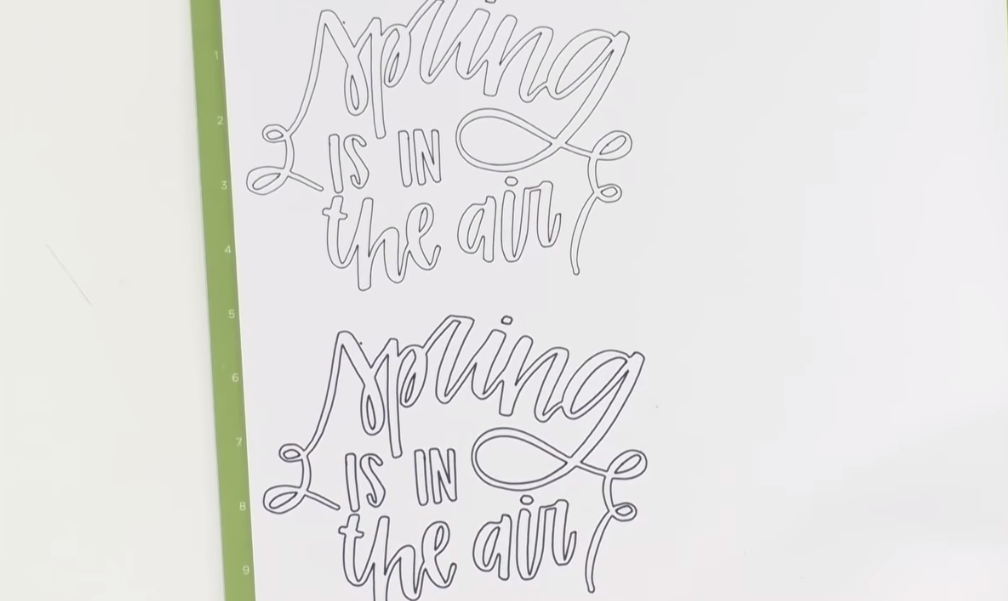 spring
IS IN
the air
spring
IS IN
the air
1
2
3
4
5
6
7
8
9